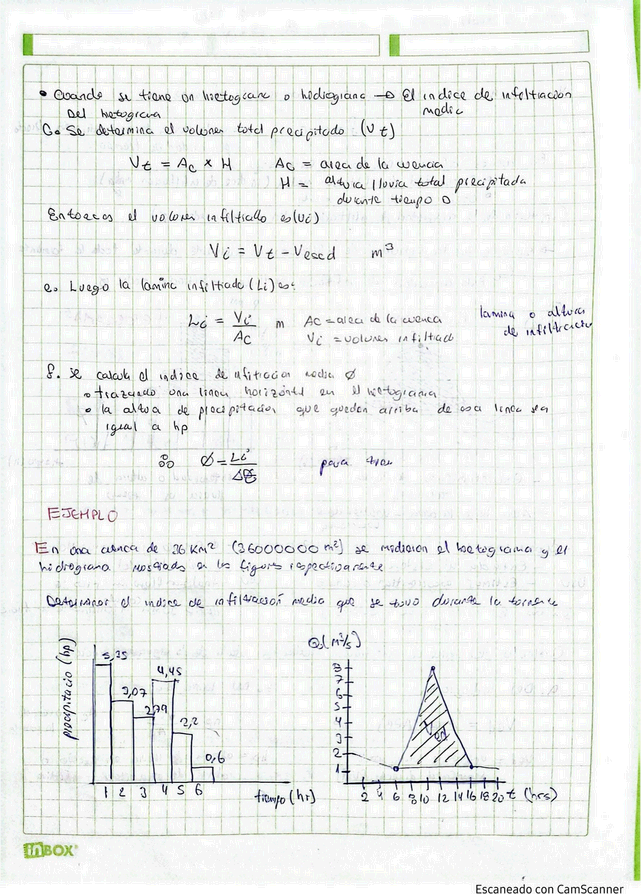 • Cuando se tiene un hietograma o hidrograma → El indice de infiltracion
Del hietograma media
C. Se determina el volumen total precipitado (Vt)
Vt = Ac x H Ac = area de la cuenca
H = altura lluvia total precipitada
durante tiempo D
Entonces el volumen infiltrado es (Vi)
Vi = Vt - Vescd m³
e. Luego la lamina infiltrada (Li) es:
Li = Vi / Ac m Ac = area de la cuenca
Vi = volumen infiltrado
lamina o altura
de infiltracion
f. Se calcula el indice de infitracion media Ø
• trazando una linea horizontal en el hietograma
• la altura de precipitacion que quedan arriba de esa linea sea
igual a hp
∴ Ø = Li / para
EJEMPLO
En una cuenca de 36 Km² (36000000 m²) se midieron el hietograma y el
hidrograma mostrados en las figuras respectivamente
Determinar el indice de infiltración media que se tuvo durante la tormenta
precipitacio (hp)
5,35
3,07
2,79
4,45
2,2
0,6
1 2 3 4 5 6
tiempo (hr)
Q (m³/s)
8
7
6
5
4
3
2
1
Ved
2 4 6 8 10 12 14 16 18 20 t (hrs)
inBOX
Escaneado con CamScanner